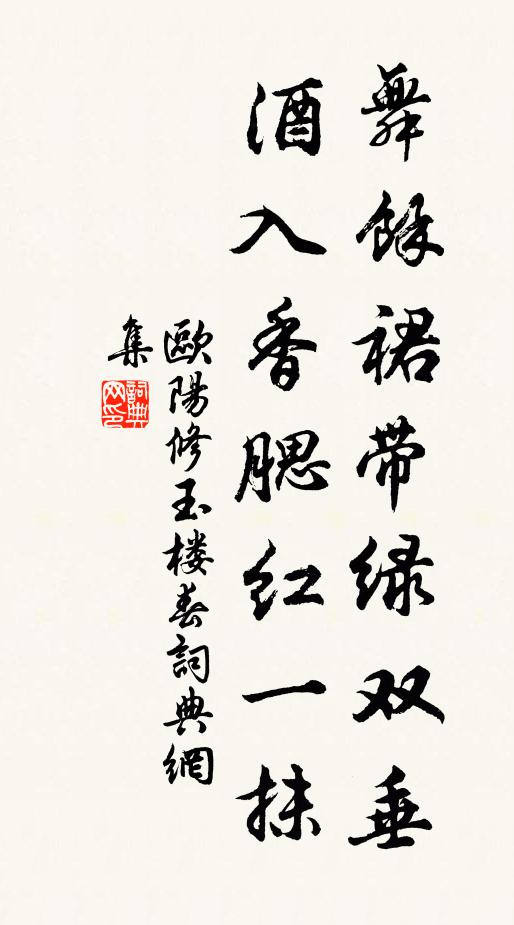 舞餘裙带绿双垂
酒入香腮红一抹
歐陽修玉楼春詞典網
集
詞典
网印